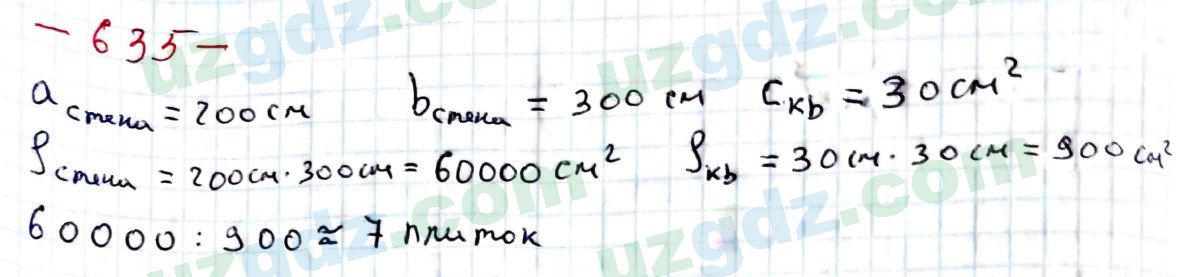 - 635 -
a стена = 200 см   b стена = 300 см   c кв = 30 см²
S стена = 200 см · 300 см = 60000 см²   S кв = 30 см · 30 см = 900 см²
60000 : 900 ≈ 7 плиток
uzgdz.com uzgdz.com
uzgdz.com uzgdz.com